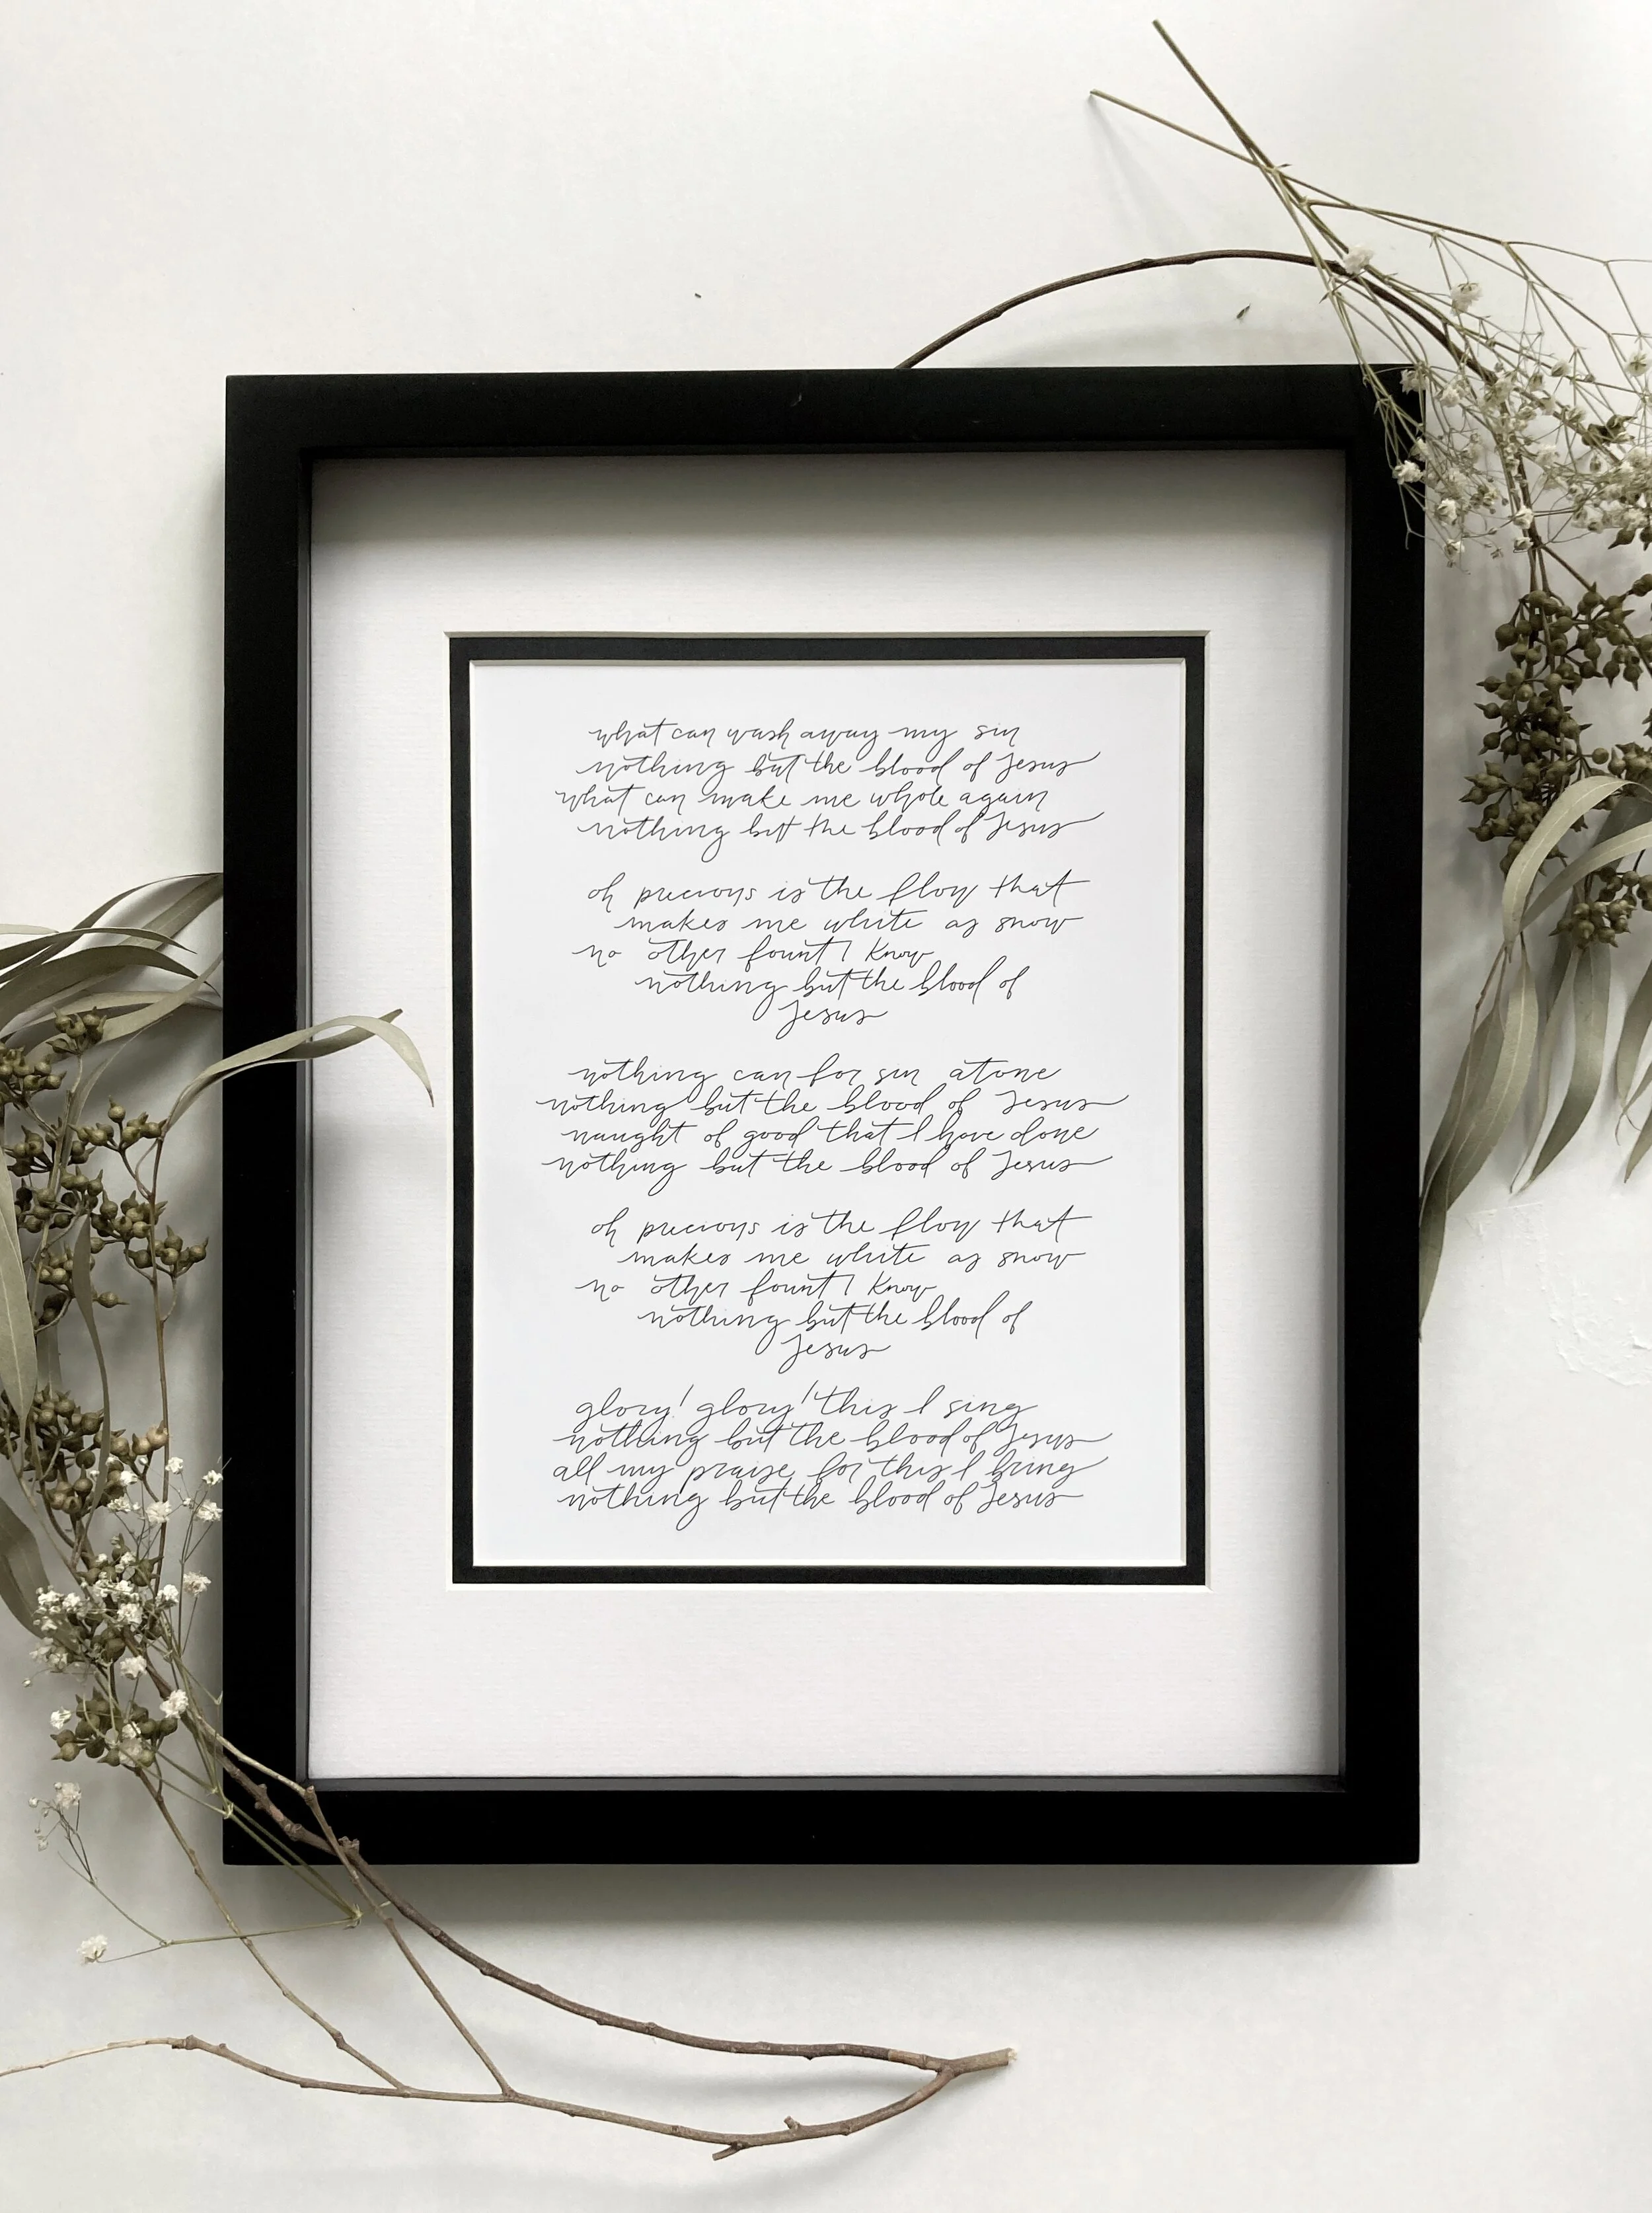 what can wash away my sin
nothing but the blood of Jesus
what can make me whole again
nothing but the blood of Jesus
oh precious is the flow that
makes me white as snow
no other fount I know
nothing but the blood of
Jesus
nothing can for sin atone
nothing but the blood of Jesus
naught of good that I have done
nothing but the blood of Jesus
oh precious is the flow that
makes me white as snow
no other fount I know
nothing but the blood of
Jesus
glory! glory! this I sing
nothing but the blood of Jesus
all my praise for this I bring
nothing but the blood of Jesus